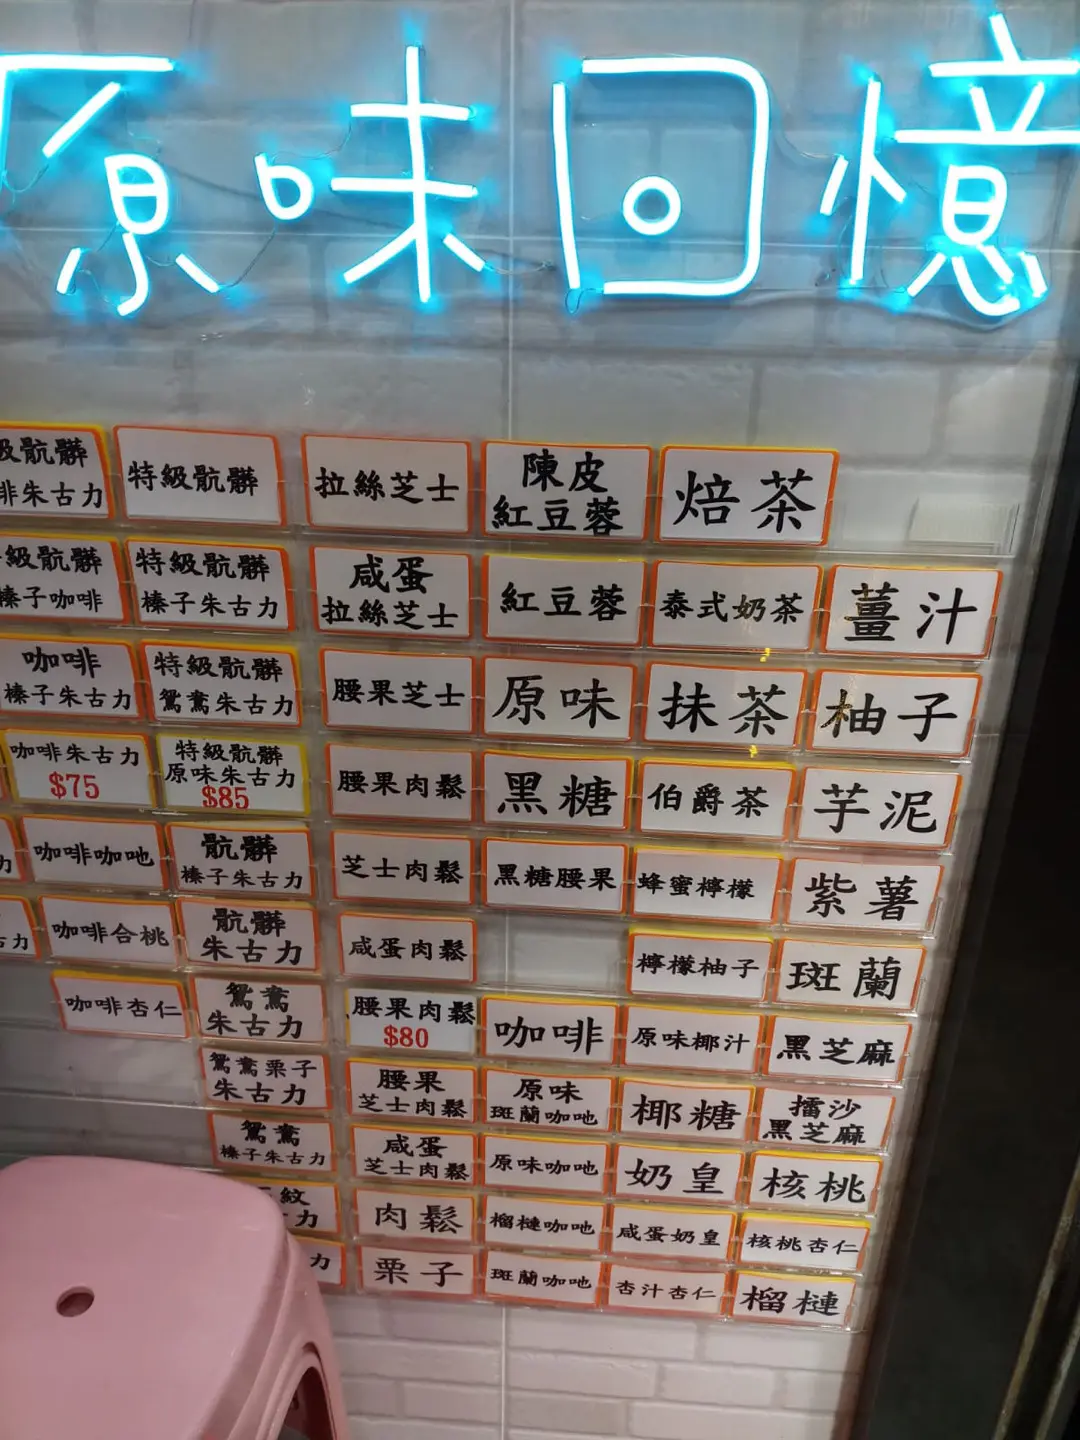 原味回憶
級骯髒
啡朱古力
特級骯髒
拉絲芝士
陳皮
紅豆蓉
焙茶
級骯髒
榛子咖啡
特級骯髒
榛子朱古力
咸蛋
拉絲芝士
紅豆蓉
泰式奶茶
薑汁
咖啡
榛子朱古力
特級骯髒
鴛鴦朱古力
腰果芝士
原味
抹茶
柚子
咖啡朱古力
$75
特級骯髒
原味朱古力
$85
腰果肉鬆
黑糖
伯爵茶
芋泥
力
咖啡咖吔
骯髒
榛子朱古力
芝士肉鬆
黑糖腰果
蜂蜜檸檬
紫薯
古力
咖啡合桃
骯髒
朱古力
咸蛋肉鬆
檸檬柚子
斑蘭
咖啡杏仁
鴛鴦
朱古力
腰果肉鬆
$80
咖啡
原味椰汁
黑芝麻
鴛鴦栗子
朱古力
腰果
芝士肉鬆
原味
斑蘭咖吔
椰糖
擂沙
黑芝麻
鴛鴦
榛子朱古力
咸蛋
芝士肉鬆
原味咖吔
奶皇
核桃
紋
力
肉鬆
榴槤咖吔
咸蛋奶皇
核桃杏仁
力
栗子
斑蘭咖吔
杏汁杏仁
榴槤